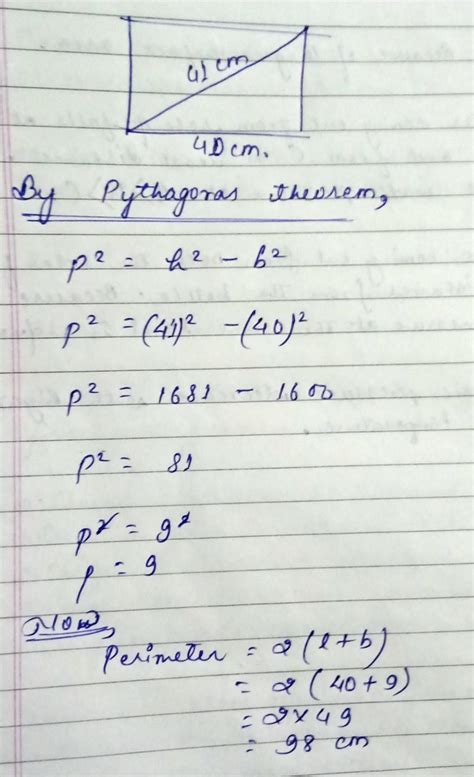 41 cm
40 cm.
By Pythagoras theorem,
p² = h² - b²
p² = (41)² - (40)²
p² = 1681 - 1600
p² = 81
p² = 9²
p = 9
Now,
Perimeter = 2(l+b)
= 2(40+9)
= 2×49
= 98 cm